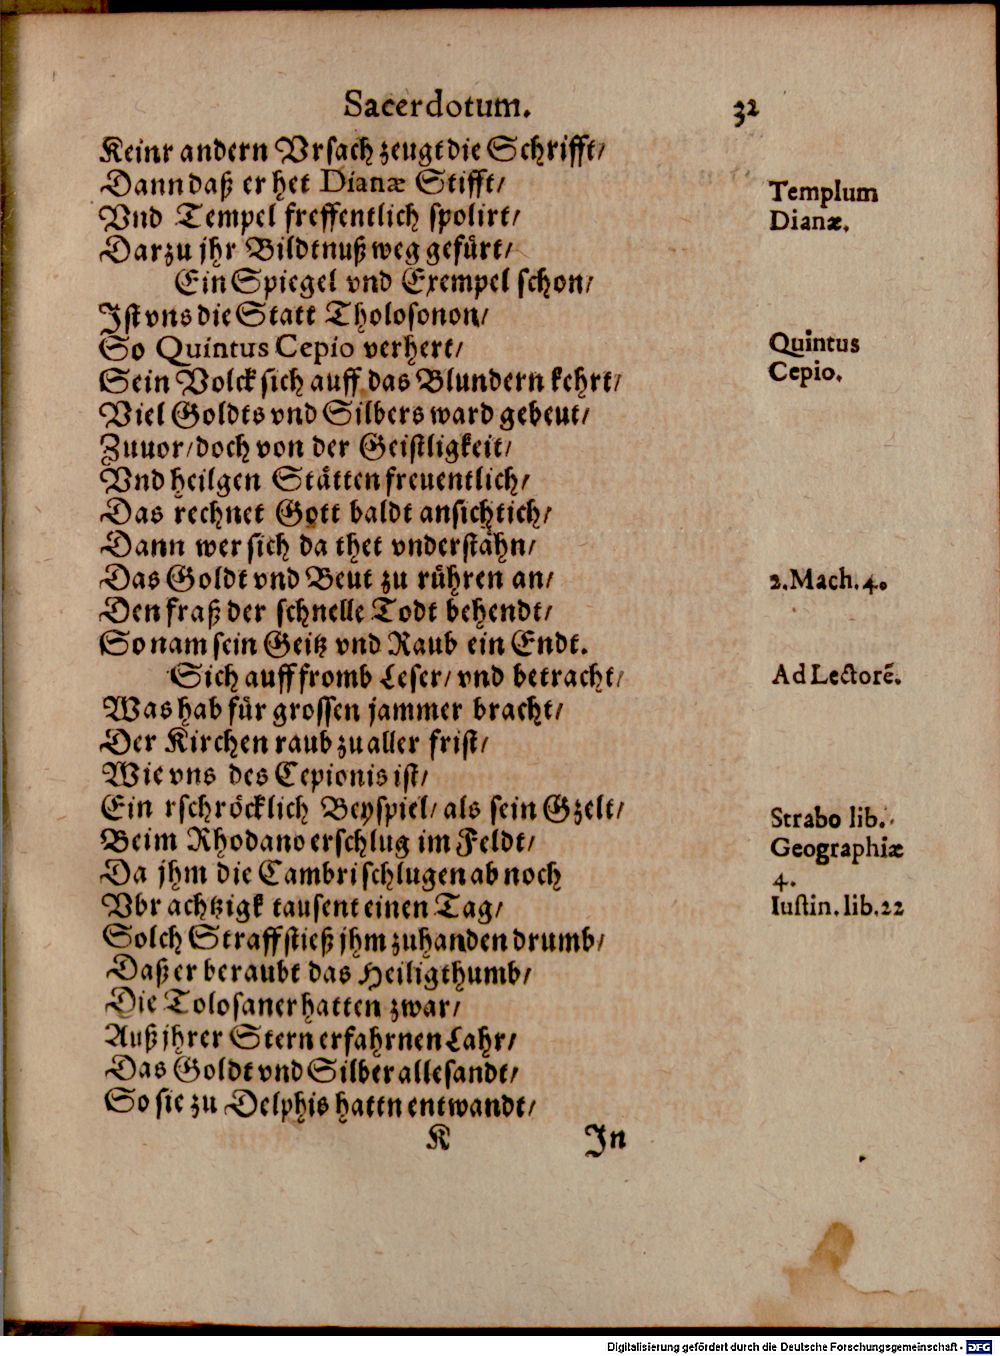 Sacerdotum. 32
Keinr andern Vrsach zeugt die Schrifft/
Dann daß er het Dianæ Stifft/
Templum
Vnd Tempel freffentlich spolirt/
Dianæ.
Darzu jhr Bildtnuß weg gefürt/
Ein Spiegel vnd Exempel schon/
Ist vns die Statt Tholosonon/
So Quintus Cepio verhert/
Quintus
Sein Volck sich auff das Blundern kehrt/
Cepio.
Viel Goldts vnd Silbers ward gebeut/
Zuuor/ doch von der Geistligkeit/
Vnd heilgen Stätten freuentlich/
Das rechnet Gott baldt ansichtich/
Dann wer sich da thet vnderstahn/
Das Goldt vnd Beut zu rühren an/
2. Mach. 4.
Den fraß der schnelle Todt behendt/
So nam sein Geitz vnd Raub ein Endt.
Sich auff fromb Leser/ vnd betracht/
Ad Lectorẽ.
Was hab für grossen jammer bracht/
Der Kirchen raub zu aller frist/
Wie vns des Cepionis ist/
Ein rschröcklich Beyspiel/ als sein Gzelt/
Strabo lib.
Beim Rhodano erschlug im Feldt/
Geographiæ
Da jhm die Cambri schlugen ab noch
4.
Vbr achtzigk tausent einen Tag/
Iustin. lib. 22
Solch Straff stieß jhm zuhanden drumb/
Daß er beraubt das Heiligthumb/
Die Tolosaner hatten zwar/
Auß jhrer Stern erfahrnen Lahr/
Das Goldt vnd Silber allesandt/
So sie zu Delphis hattn entwandt/
K In
Digitalisierung gefördert durch die Deutsche Forschungsgemeinschaft - DFG